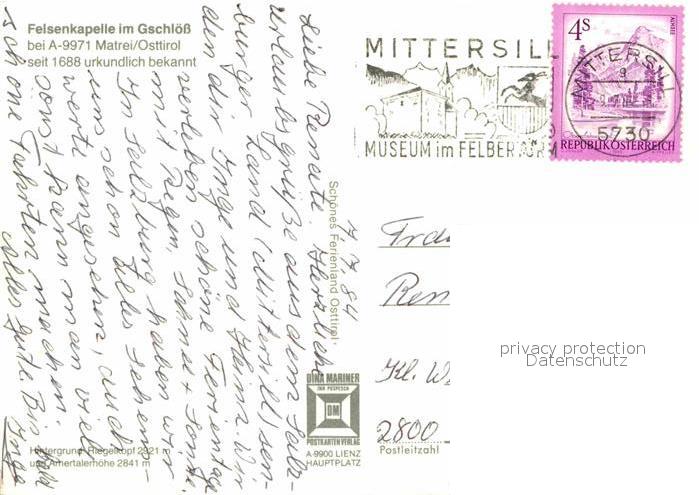 Felsenkapelle im Gschlöß
bei A-9971 Matrei/Osttirol
seit 1688 urkundlich bekannt
7.7.84
Liebe Renate. Herzliche
Urlaubsgrüße aus dem Salz-
burger Land (Mittersill) sen-
den dir Inge und Heinz. Wir
verleben schöne Ferientage
mit Regen, Schnee + Sonne.
In Salzburg haben wir
uns schon alles Sehens-
werte angesehen, auch
sonst kann man viel
schöne Fahrten machen.
Alles Gute. Bis bald
Inge
Hintergrund: Riegelkopf 2921 m
und Amertalerhöhe 2841 m
Schönes Ferienland Osttirol
DINA MARINER
INH POSPESCH
DM
POSTKARTENVERLAG
A-9900 LIENZ
HAUPTPLATZ
MITTERSILL
MUSEUM im FELBERTURM
MITTERSILL
5730
4S
REPUBLIK ÖSTERREICH
Ren
Kl.
2800
Postleitzahl
privacy protection
Datenschutz